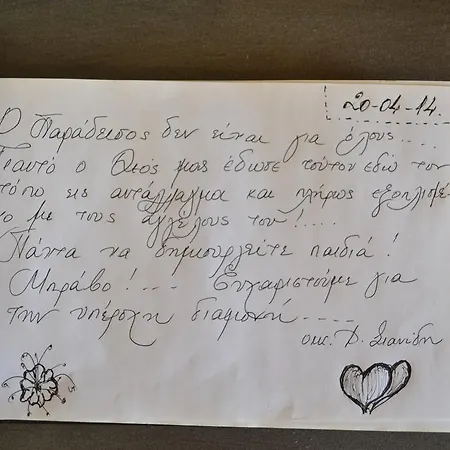 20-04-14.
Ο Παράδεισος δεν είναι για όλους....
Γιαυτό ο Θεός μας έδωσε τούτον εδώ τον
τόπο εις αντάλλαγμα και πλήρως εξοπλισμέ-
νο με τους αγγέλους του!....
Πάντα να δημιουργείτε παιδιά!
Μπράβο!.... Ευχαριστούμε για
την υπέροχη διαμονή.....
οικ. Δ. Σιανίδη